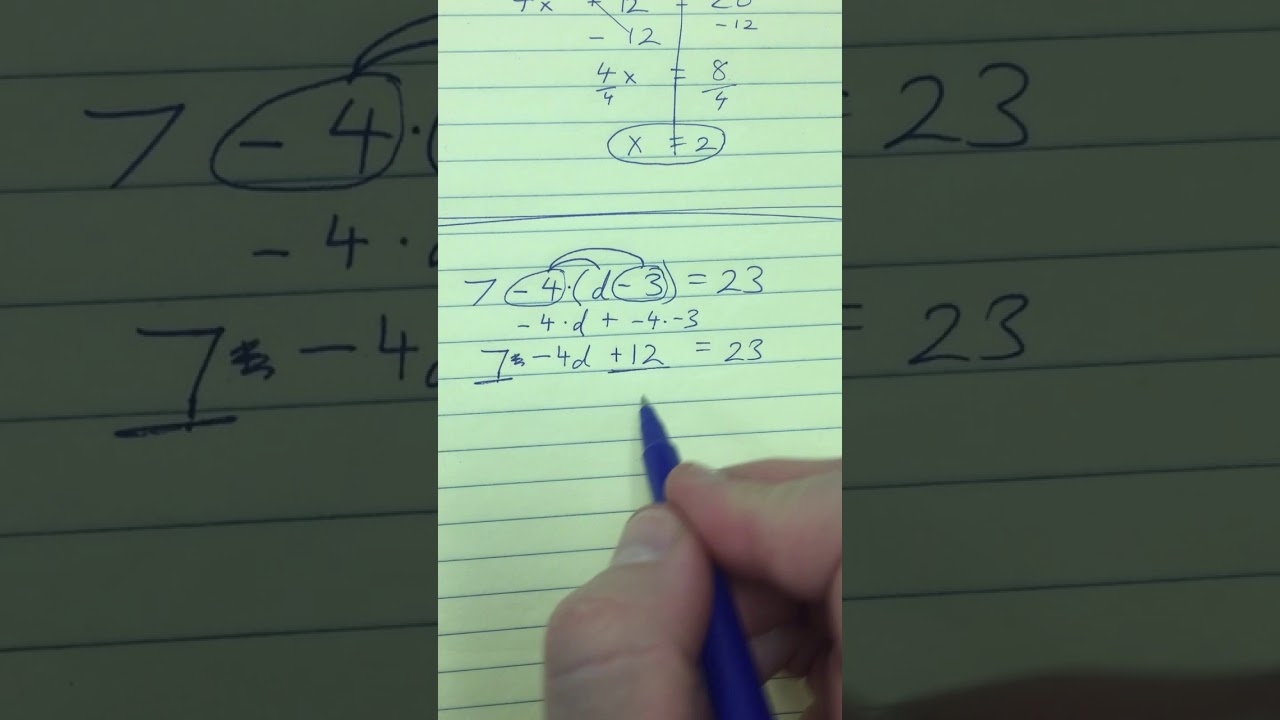 4x + 12 = 20
- 12 -12
4/4 x = 8/4
x = 2
7 - 4 · (d - 3) = 23
- 4 · d + -4 · -3
7 - 4d + 12 = 23